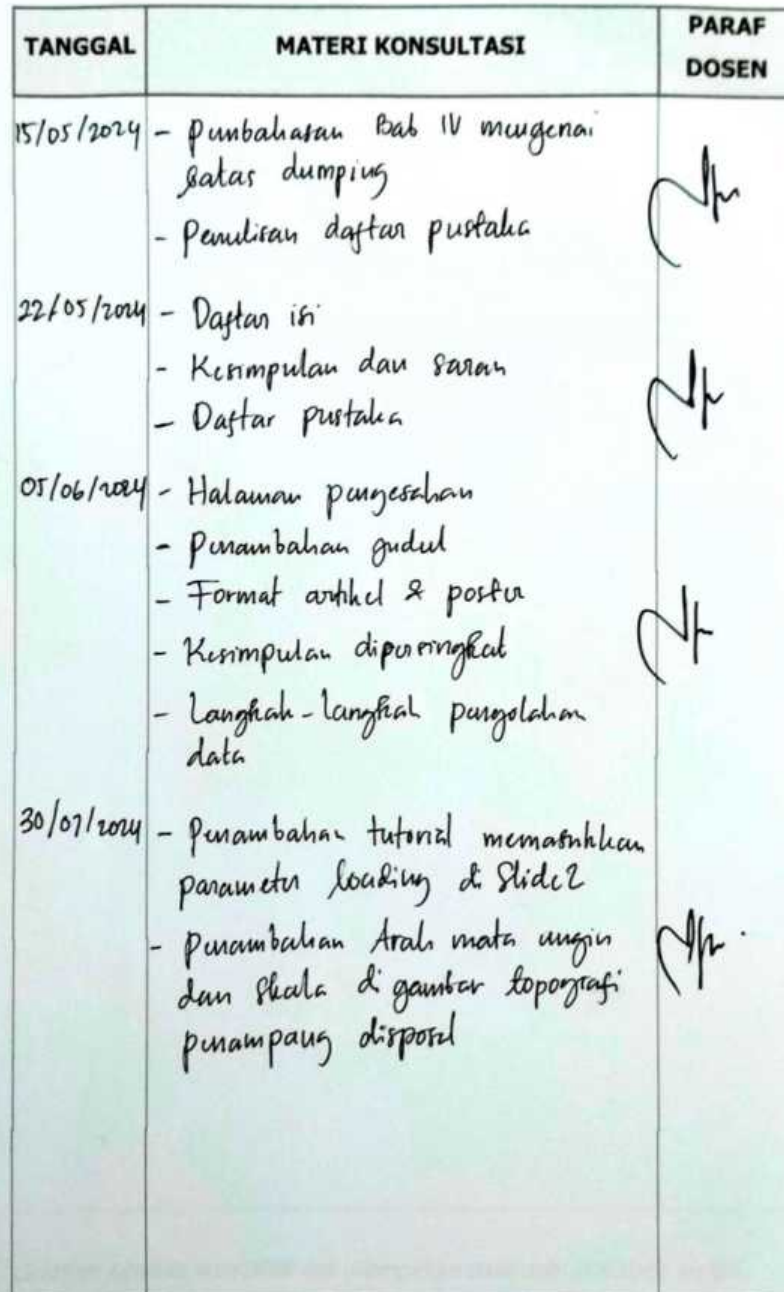 TANGGAL MATERI KONSULTASI PARAF DOSEN
15/05/2024 - Pembahasan Bab IV mengenai
batas dumping
- Penulisan daftar pustaka
22/05/2024 - Daftar isi
- Kesimpulan dan saran
- Daftar pustaka
05/06/2024 - Halaman pengesahan
- Penambahan judul
- Format artikel & poster
- Kesimpulan dipersingkat
- Langkah-langkah pengolahan
data
30/07/2024 - Penambahan tutorial memasukkan
parameter loading di Slide2
- Penambahan Arah mata angin
dan Skala di gambar topografi
penampang disposal